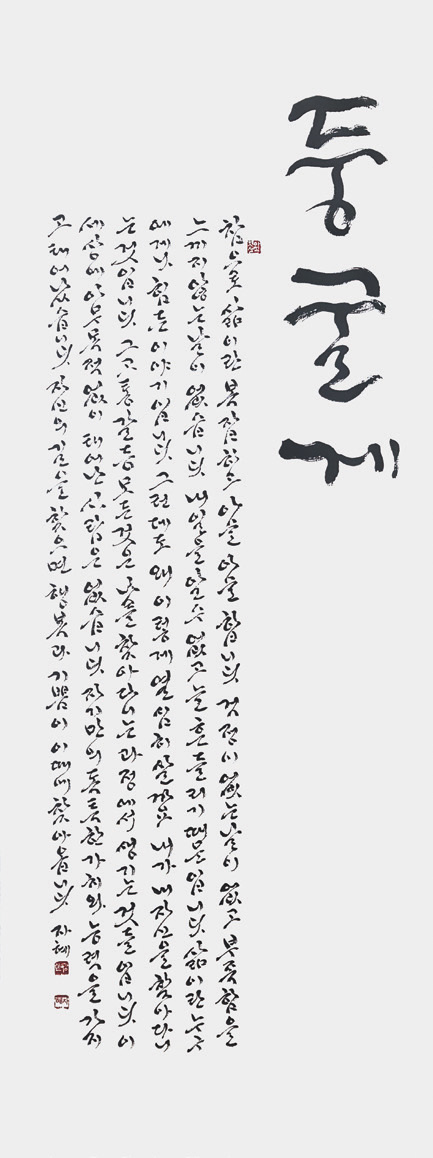 둥굴게
참으로 삶이란 복잡하고 아슬아슬 합니다 걱정이 없는 날이 없고 부족함을
느끼지 않는 날이 없습니다 내일을 알 수 없고 늘 흔들리기 때문입니다 삶이란 누구
에게나 힘든 이야기입니다 그런데도 왜 이렇게 열심히 살까요 내가 내 자신을 찾아다니
는 것입니다 그 고통 갈등 모든 것은 나를 찾아다니는 과정에서 생기는 것들입니다 이
세상에 아무 목적 없이 태어난 사람은 없습니다 자기만의 독특한 가치와 능력을 가지
고 태어났습니다 자신의 길을 찾으면 행복과 기쁨이 이때에 찾아옵니다 자혜